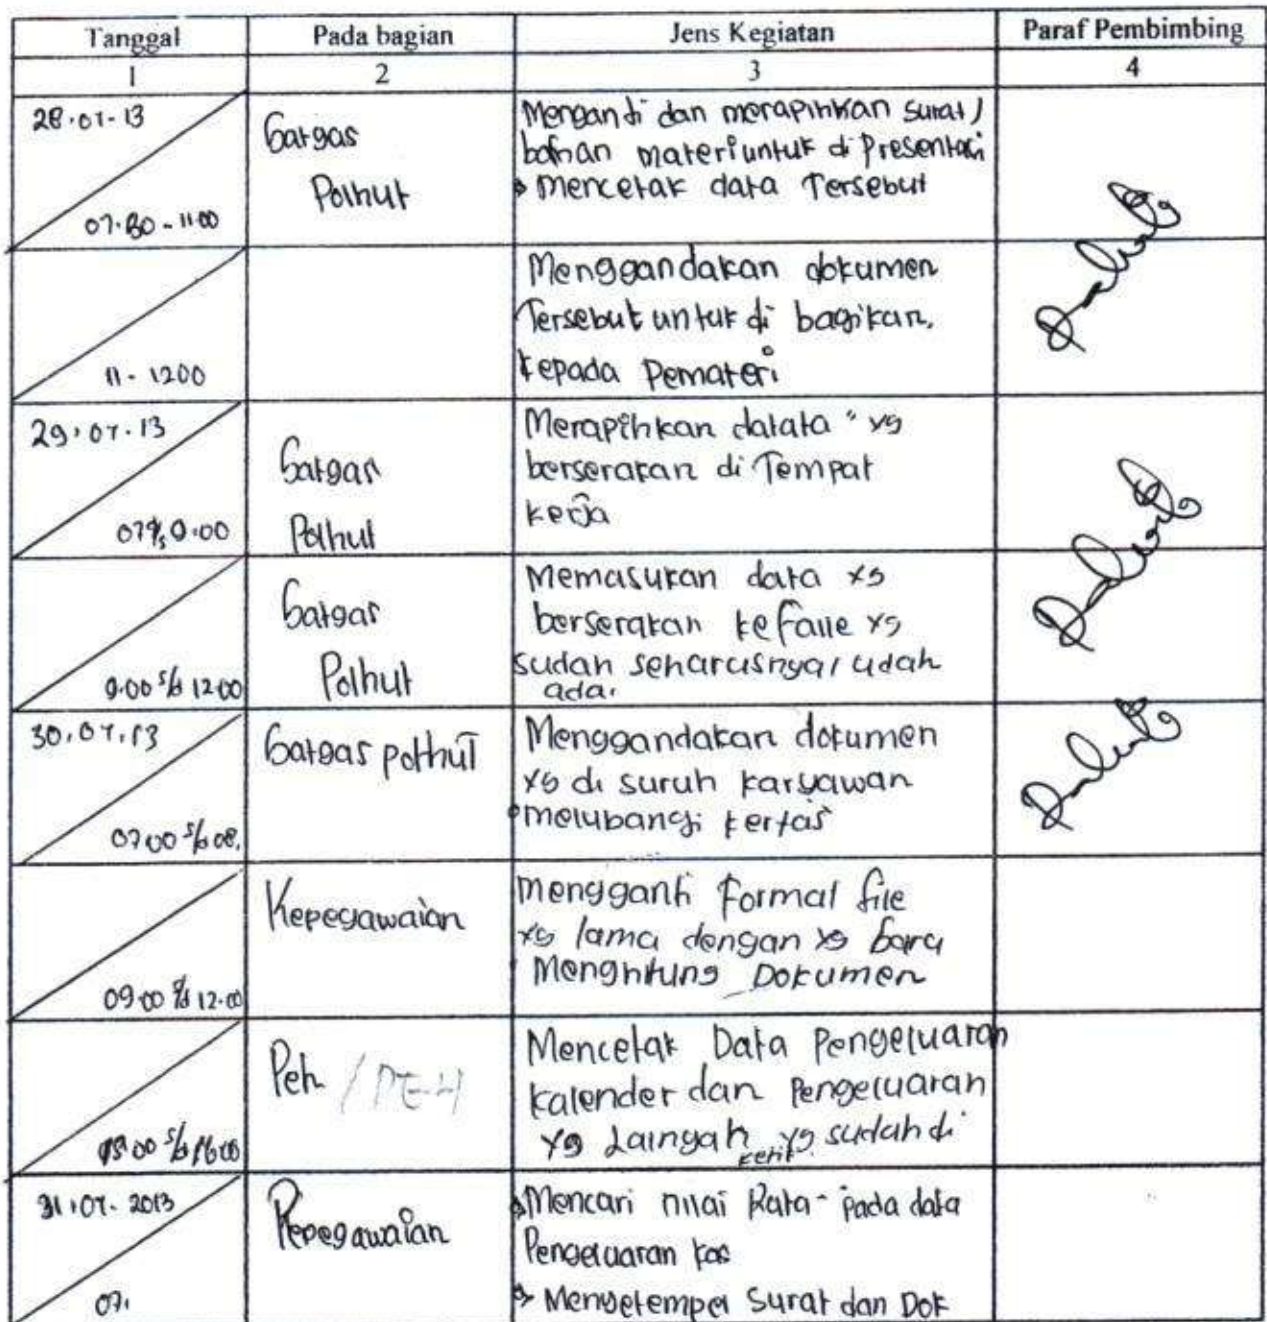 Tanggal Pada bagian Jens Kegiatan Paraf Pembimbing
1 2 3 4
28.07.13
07.30 - 11.00
Gatgas
Polhut
Menganti dan merapihkan surat /
bahan materi untuk di Presentasi
Mencetak data Tersebut
11 - 1200
Menggandakan dokumen
Tersebut untuk di bagikan.
kepada Pemateri
29.07.13
9.00
Gatgas
Polhut
Merapihkan datata " yg
berserakan di Tempat
kerja
9.00 s/d 12.00
Gatgas
Polhut
Memasukan data yg
berserakan ke faile yg
sudah seharusnya udah
ada.
30.07.13
07.00 s/d 08.
Gatgas polhut
Menggandakan dokumen
yg di suruh karyawan
melubangi kertas
09.00 s/d 12.00
Kepegawaian
Mengganti Format file
yg lama dengan yg baru
Menghitung Dokumen
s/d
Peh / PEH
Mencetak Data Pengeluaran
kalender dan Pengeluaran
yg Laingah yg sudah di
ketik
31.07.2013
07.
Kepegawaian
Mencari nilai Rata- pada data
Pengeluaran kas
Menyetempel Surat dan Dok